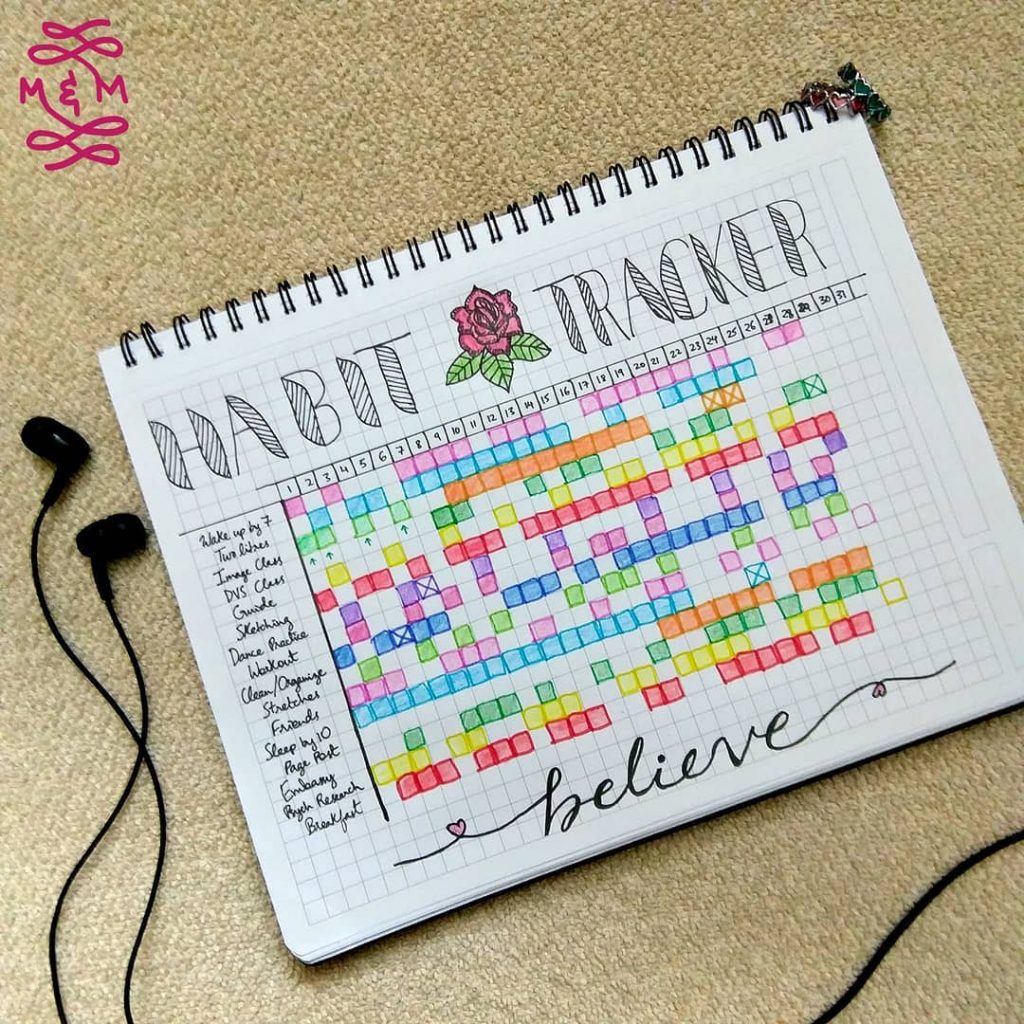 M & M
HABIT TRACKER
1 2 3 4 5 6 7 8 9 10 11 12 13 14 15 16 17 18 19 20 21 22 23 24 25 26 28 29 30 31
Wake up by 7
Two litres
Image Class
DVS Class
Guide
Sketching
Dance Practice
Workout
Clean/Organize
Stretches
Friends
Sleep by 10
Page Post
Embassy
Psych Research
Breakfast
believe